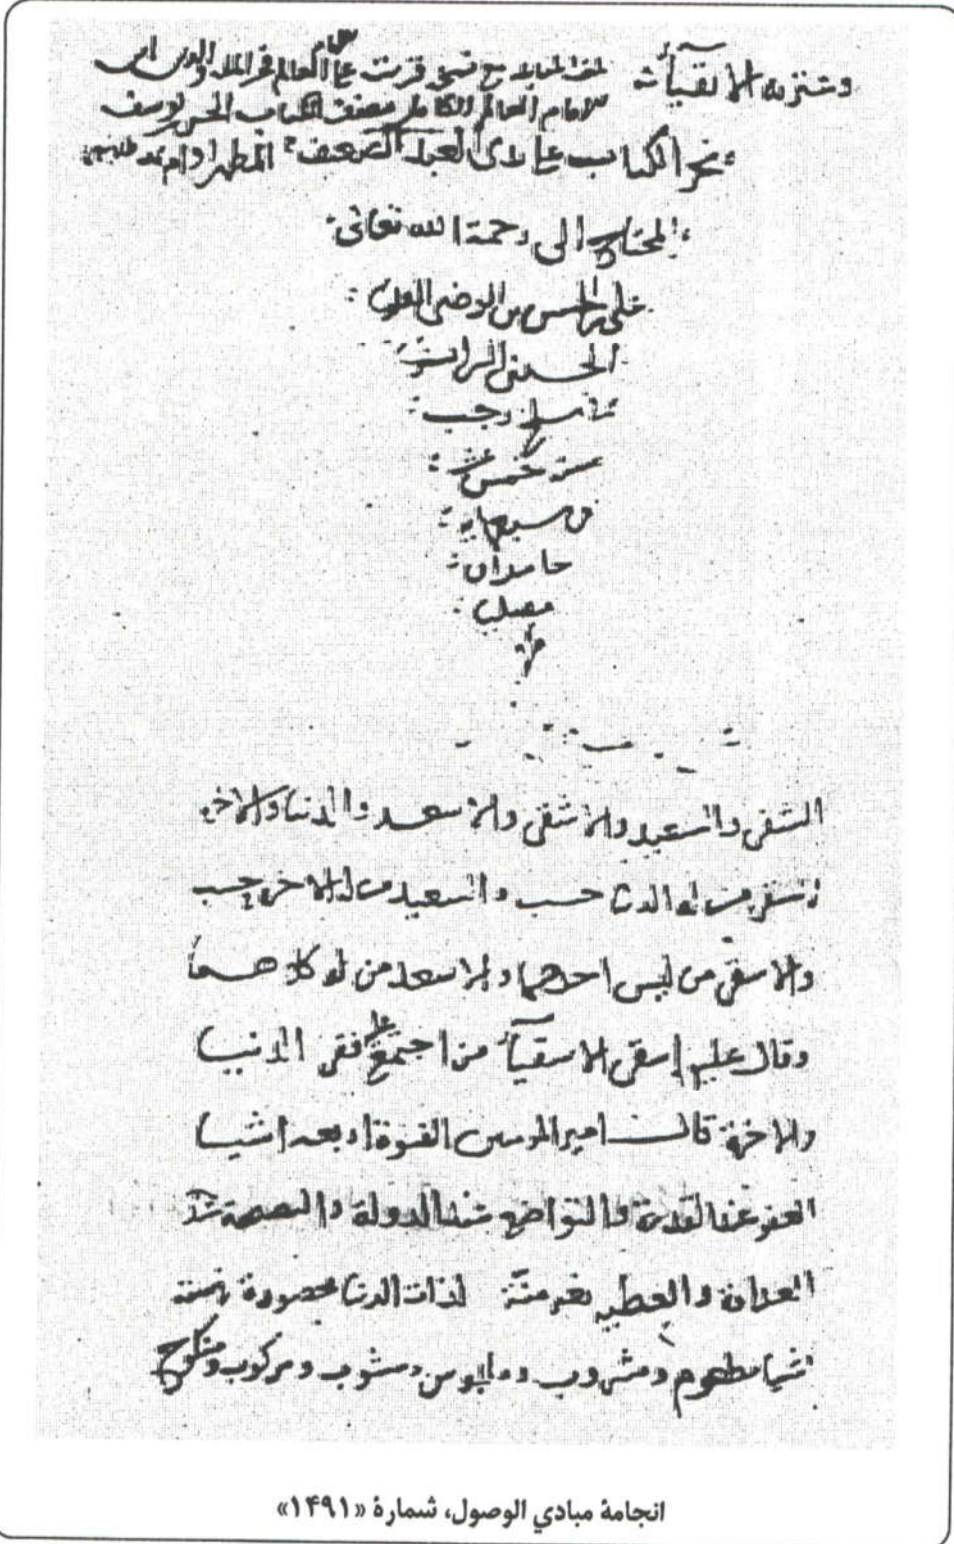 وتتنزه الاتقيآء
بلغ المقابلة مع نسخة قرئت على الامام العالم فخر الملة والدين ابن
الامام العالم الكامل مصنف الكتاب الحسن بن يوسف
نجز الكتاب على يدى العبد الضعيف المطهر ادام
المحتاج الى رحمة الله تعالى
على بن الحسن بن الرضى العلوى
الحسينى
رجب
سنة خمس عشر
و سبعمايه
حامدا
مصليا
الشقى والسعيد والاشقى والاسعد والدنيا والاخره
الشقى من له الدنيا حسب والسعيد من له الاخره حسب
والاشقى من ليس احدهما والاسعد من له كلاهما
وقال عليه اشقى الاشقيآء من اجتمع عليه فقر الدنيا
والاخرة قال امير المومنين الفتوة اربعه اشيا
العفو عند القدرة والتواضع عند الدولة والنصيحة عند
العداوة والعطيه بغير منّة لذات الدنيا محصورة فى ستة
اشيا مطعوم ومشروب وملبوس ومشموم ومركوب ومنكوح
انجامهٔ مبادي الوصول، شمارهٔ «۱۴۹۱»